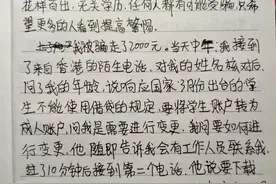 花样百出，无关学历，任何人都有可能受骗，只希
望更多的人看到提高警惕。
我被骗走了2000元，当天中午，我接到
了来自香港的陌生电话，对我的姓名核对后，
问了我的年龄，说响应国家3月份出台的学
生不能使用借贷的规定，要将学生账户转为
成人账户，问我是需要进行变更，我问要如何进
行变更，他随即告诉我会有工作人员联系我，
过了10分钟后接到第二个电话，他说要下载